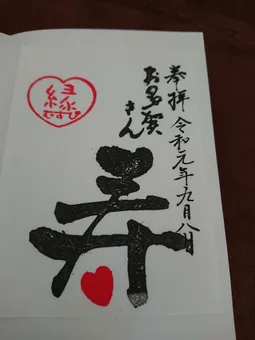 奉拝 令和元年九月八日
お多賀さん
寿
縁
むすび